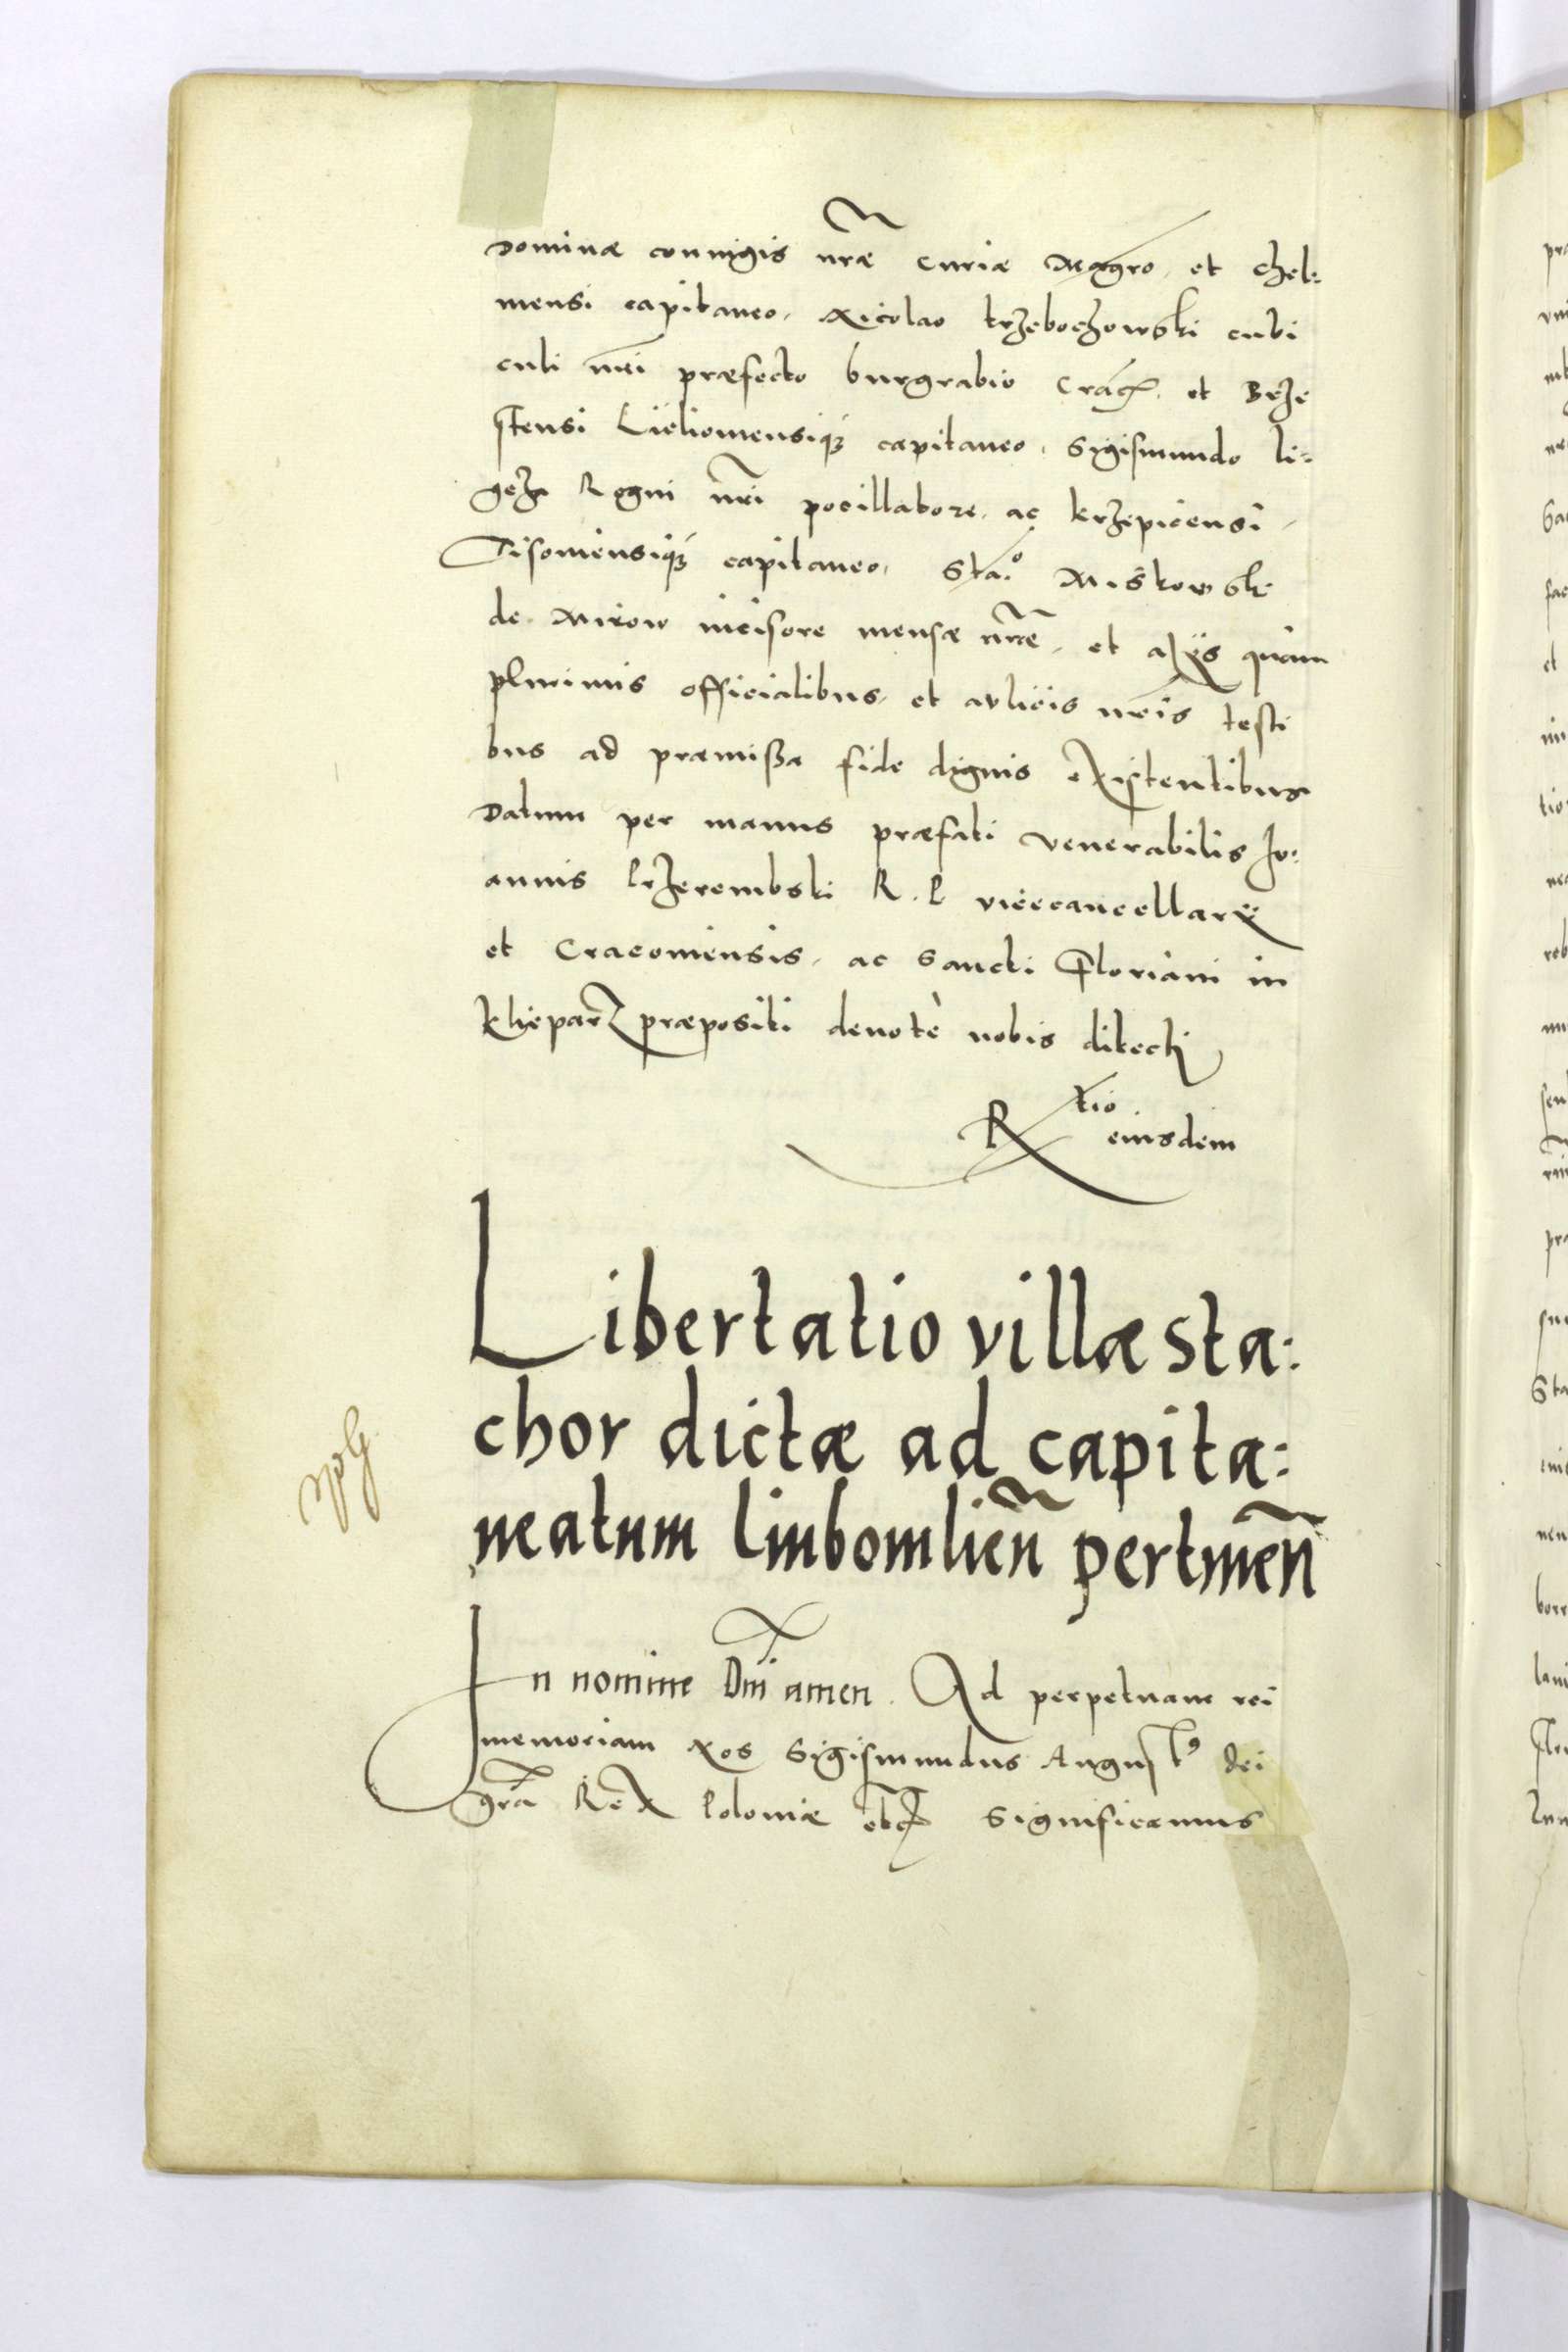 Dominæ coniugis nr̃æ Curiæ Magro. et Chel-
mensi capitaneo. Nicolao krzeboczowski cubi
culi nr̃i præfecto burgrabio Crac̃. et Brze
stensi capitaneo. Sigismundo li-
gęza Regni nr̃i pocillatore. ac krzepicensi
capitaneo. Sta.º Miskowski
de Mirow incisore mensæ nr̃æ. et alijs quàm
plurimis officialibus. et aulicis nr̃is testi
bus ad præmissa fide dignis existentibus
Datum per manus præfati venerabilis Jo-
annis Przerembski R. P vicecancellarij
et Cracoviensis. ac Sancti Floriani in
kleparz præpositi devotè nobis dilecti
R tio eiusdem
Libertatio villæ Sta:
chor dictæ ad capita:
neatum liubomlien̄ pertinen̄
In nomine Dn̄i amen. Ad perpetuam rei
memoriam Nos Sigismundus August9 dei
gr̃a Rex Poloniæ etc Significamus